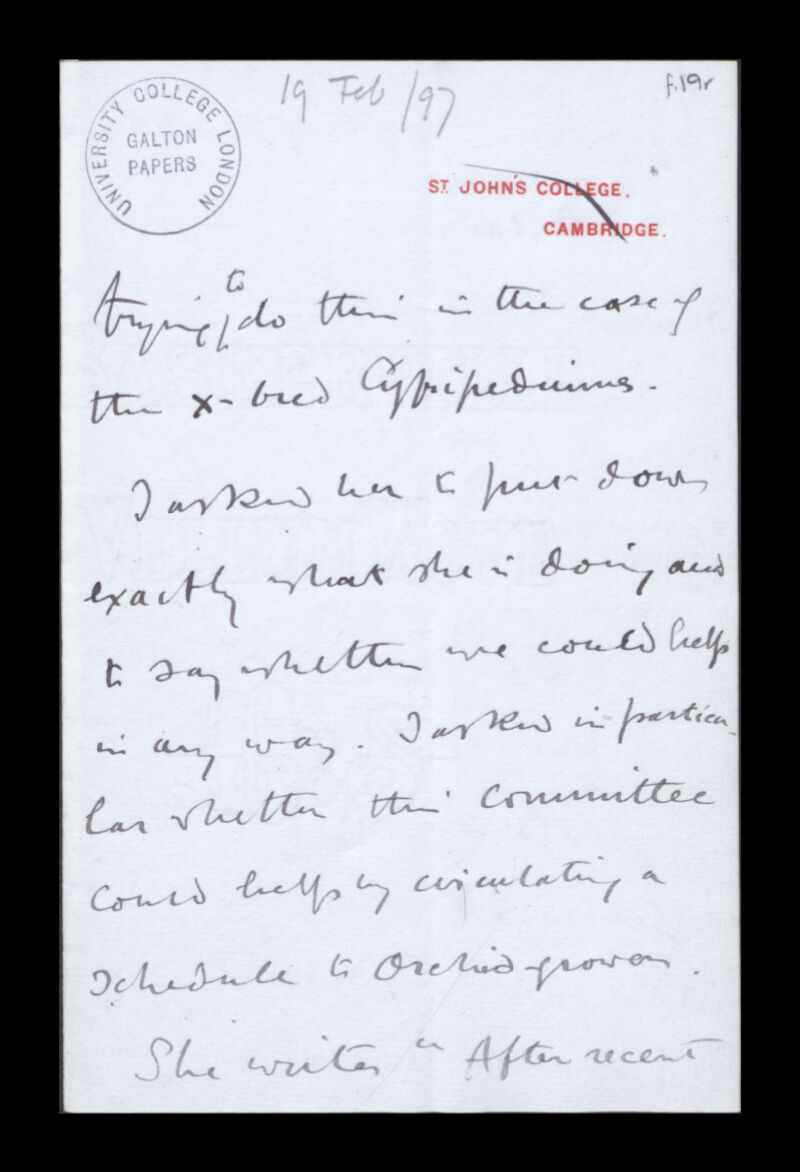 19 Feb /97
f.19r
UNIVERSITY COLLEGE LONDON
GALTON
PAPERS
ST. JOHN'S COLLEGE,
CAMBRIDGE.
trying to do this in the case of
the x-bred Cypripediums.
I asked her to put down
exactly what she is doing and
to say whether we could help
in any way. I asked in particu-
lar whether this committee
could help by circulating a
schedule to Orchid-growers.
She writes "After recent